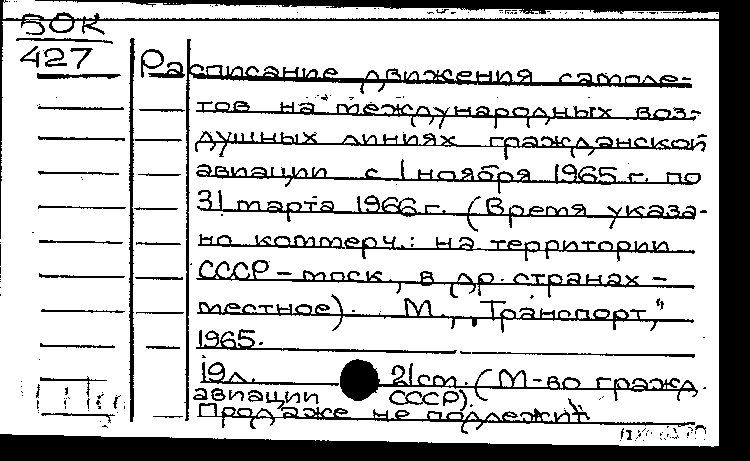 50К
427
Расписание движения самоле-
тов на международных воз-
душных линиях гражданской
авиации с 1 ноября 1965 г. по
31 марта 1966 г. (Время указа-
но коммерч.: на территории
СССР – моск., в др. странах –
местное). М., „Транспорт,"
1965.
19л. 21см. (М-во гражд.
авиации СССР).
Продаже не подлежит